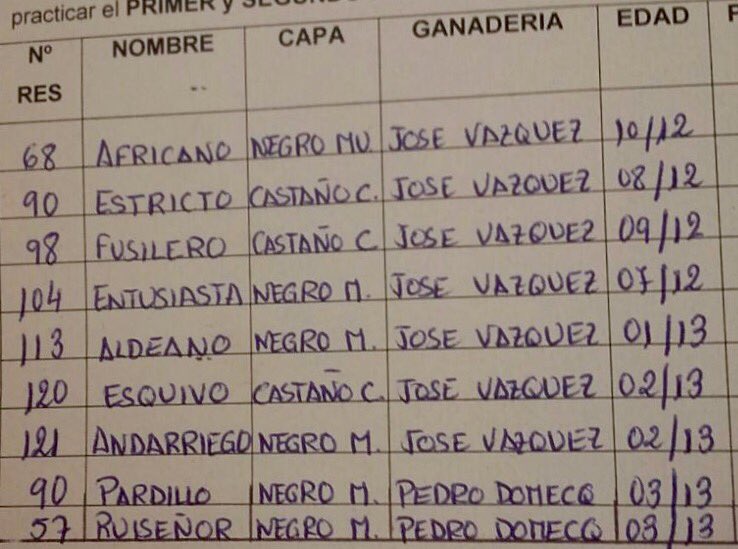 practicar el PRIMER y SEGUNDO
Nº RES NOMBRE CAPA GANADERIA EDAD
68 AFRICANO NEGRO MU. JOSE VAZQUEZ 10/12
90 ESTRICTO CASTAÑO C. JOSE VAZQUEZ 08/12
98 FUSILERO CASTAÑO C JOSE VAZQUEZ 09/12
104 ENTUSIASTA NEGRO M. JOSE VAZQUEZ 07/12
113 ALDEANO NEGRO M. JOSE VAZQUEZ 01/13
120 ESQUIVO CASTAÑO C. JOSE VAZQUEZ 02/13
121 ANDARRIEGO NEGRO M. JOSE VAZQUEZ 02/13
90 PARDILLO NEGRO M. PEDRO DOMECQ 03/13
57 RUISEÑOR NEGRO M. PEDRO DOMECQ 03/13